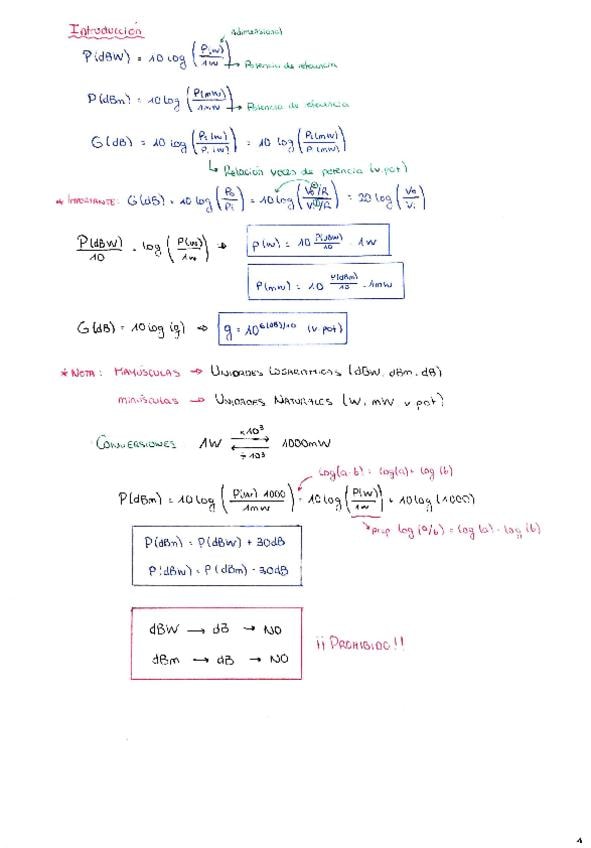 Introducción
Adimensional
P(dBW) = 10 log (P(w)/1w) → Potencia de referencia
P(dBm) = 10 log (P(mw)/1mw) → Potencia de referencia
G(dB) = 10 log (P(w)/P(w)) = 10 log (P(mw)/P(mw))
↳ Relación veces de potencia (v.pot)
* IMPORTANTE: G(dB) = 10 log (Po/Pi) = 10 log (Vo²/R / Vi²/R) = 20 log (Vo/Vi)
P(dBW)/10 = log (P(w)/1w) ⇒ P(w) = 10^(P(dBW)/10) · 1w
P(mw) = 10^(P(dBm)/10) · 1mw
G(dB) = 10 log (g) ⇒ g = 10^(G(dB)/10) (v.pot)
* NOTA: MAYÚSCULAS → UNIDADES LOGARITMICAS (dBW, dBm, dB)
minúsculas → UNIDADES NATURALES (W, mW v.pot)
CONVERSIONES 1W ⇄ 1000mW
×10³
÷10³
log(a·b) = log(a) + log(b)
P(dBm) = 10 log (P(w) 1000/1mw) = 10 log (P(w)/1w) + 10 log (1000)
→ prop log (a/b) = log (a) - log (b)
P(dBm) = P(dBW) + 30dB
P(dBW) = P(dBm) - 30dB
dBW → dB → NO
dBm → dB → NO
¡¡PROHIBIDO!!
1